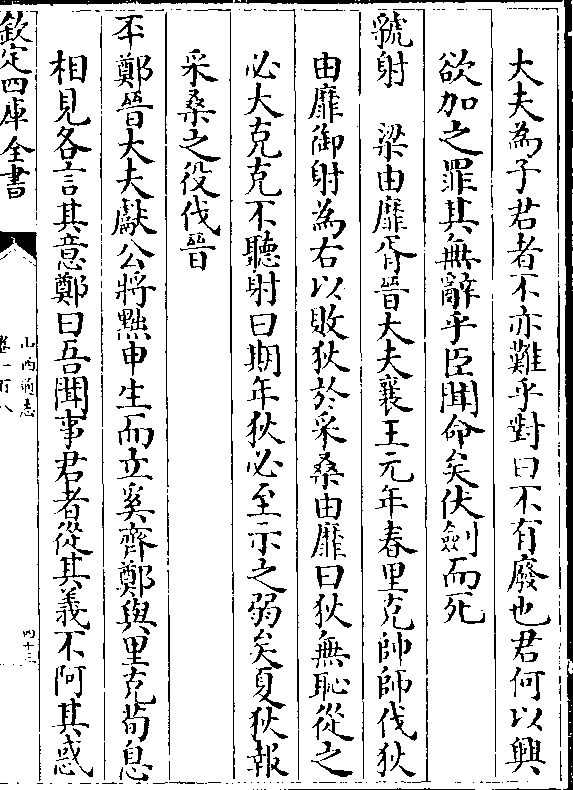 大夫為子君者不亦難乎對曰不有廢也君何以興
欲加之罪其無辭乎臣聞命矣伏劍而死
虢射　梁由靡胥晉大夫襄王元年春里克帥師伐狄
由靡御射為右以敗狄於采桑由靡曰狄無恥從之
必大克克不聽射曰期年狄必至示之弱矣夏狄報
采桑之役伐晉
丕鄭晉大夫獻公將黜申生而立奚齊鄭與里克荀息
相見各言其意鄭曰吾聞事君者從其義不阿其惑
欽定四庫全書
山西通志
卷一百八
四十三